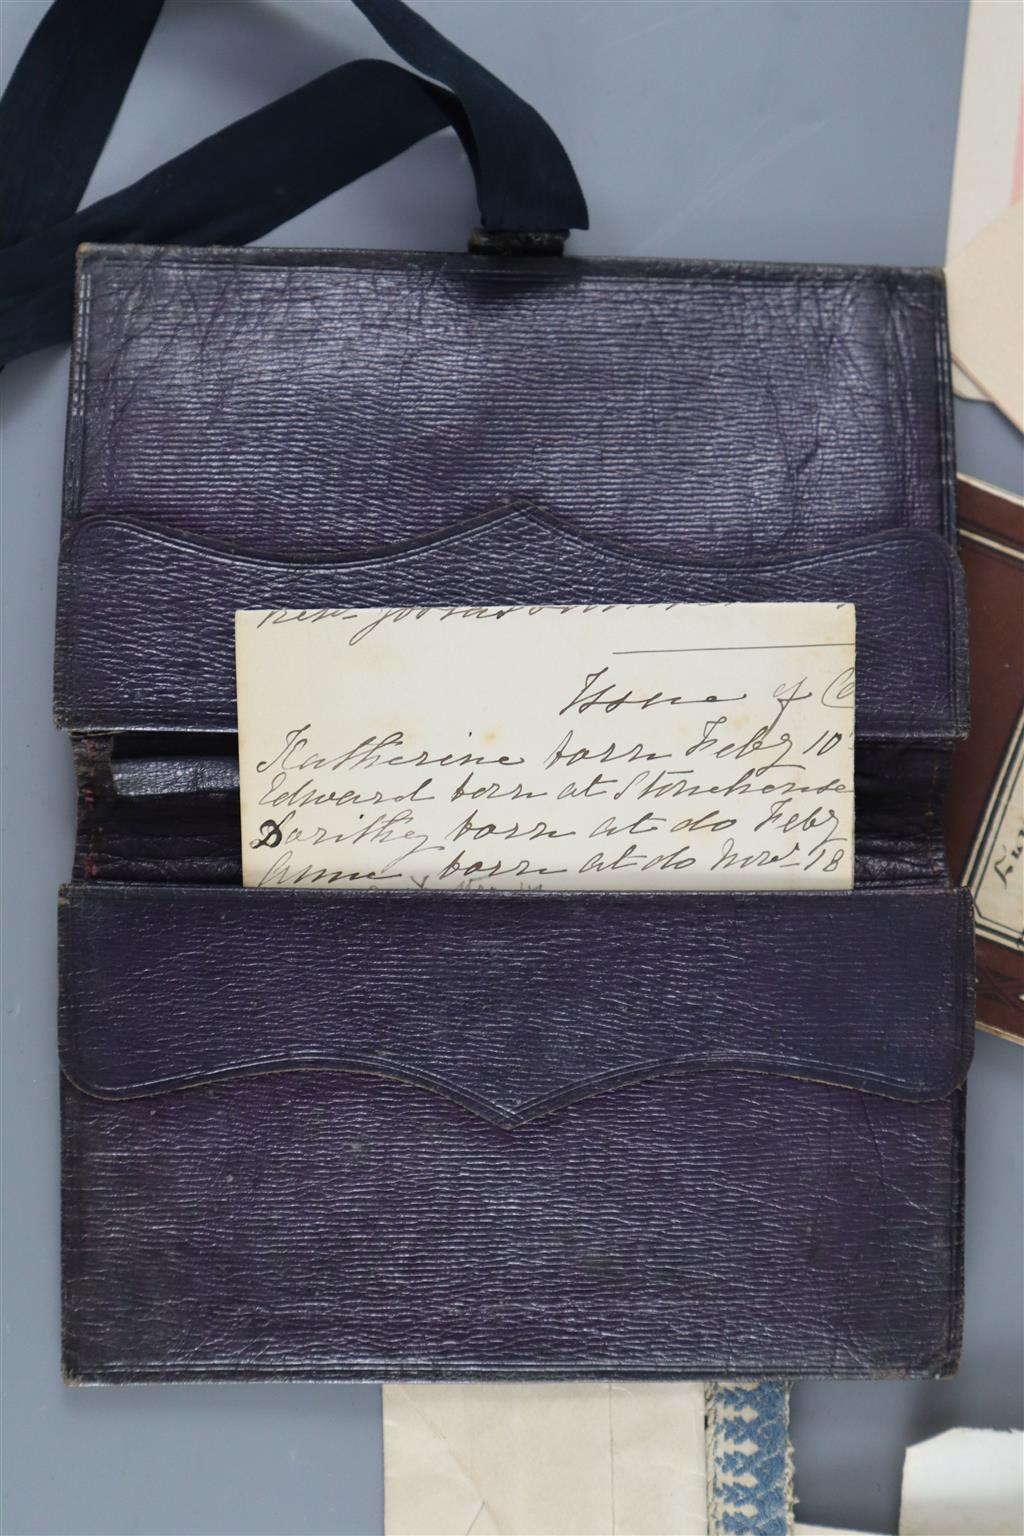 Issue of Co
Katherine born Feby 10
Edward born at Stonehouse
Dorithy born at do Feby
Anne born at do Novr 18